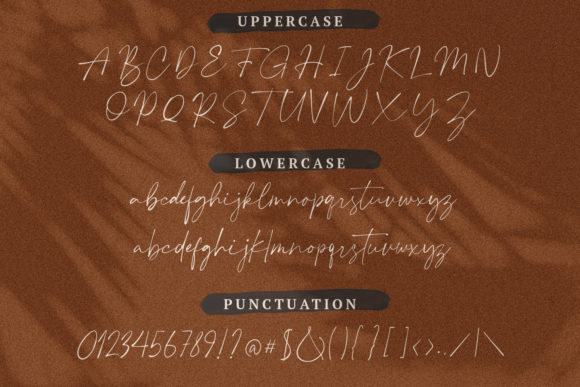 UPPERCASE
A B C D E F G H I J K L M N
O P Q R S T U V W X Y Z
LOWERCASE
abcdefghijklmnopqrstuvwxyz
abcdefghijklmnopqrstuvwxyz
PUNCTUATION
0123456789!?@#$&(){}[]<>../|\